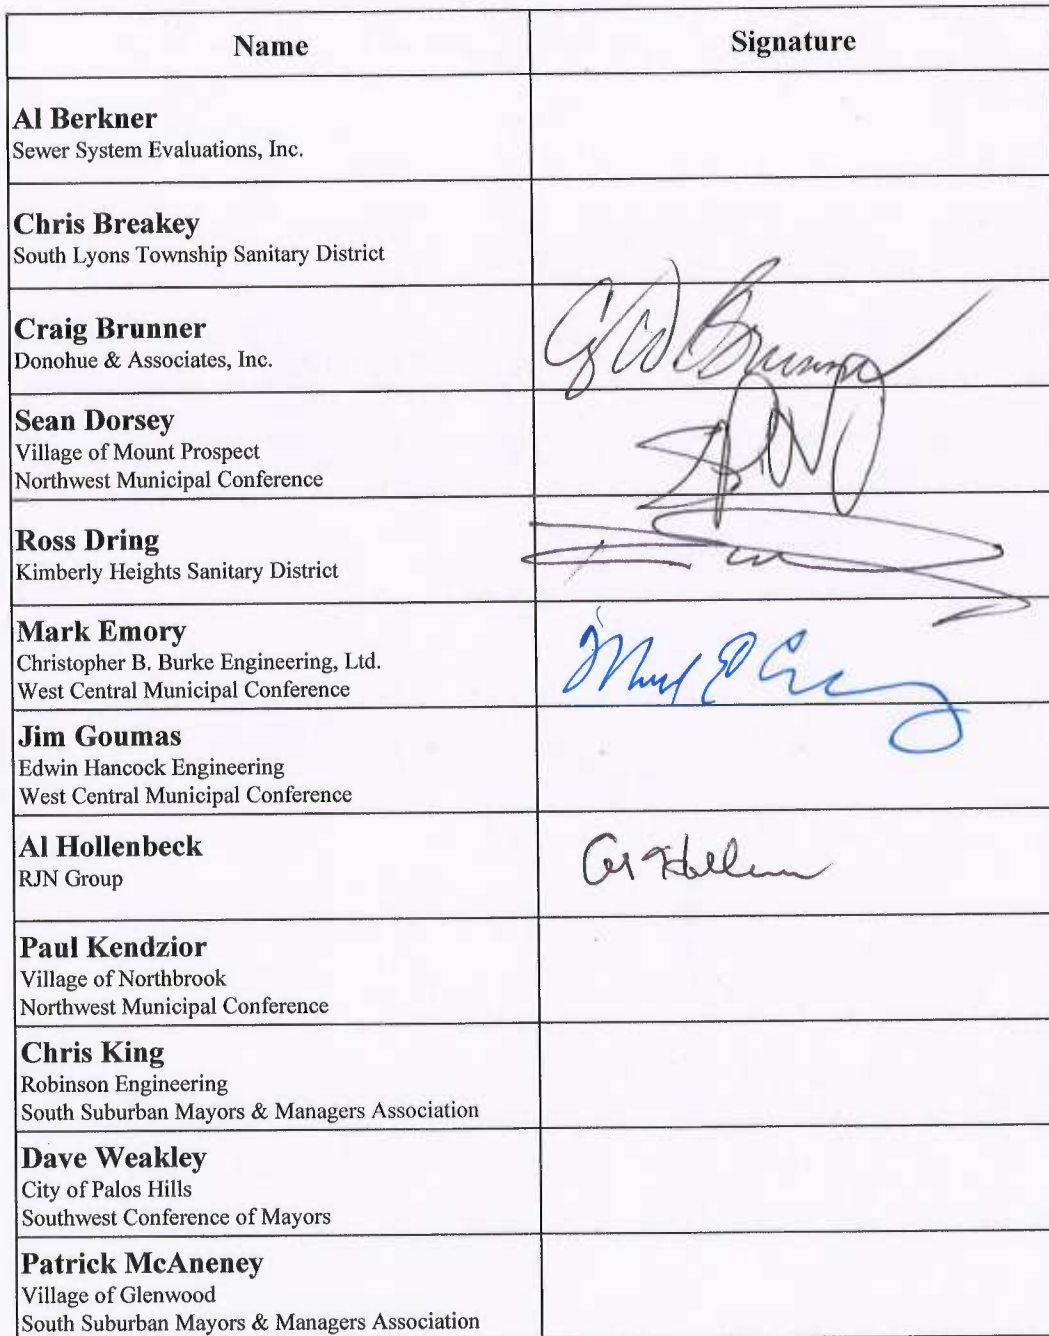 Name Signature
Al Berkner
Sewer System Evaluations, Inc.
Chris Breakey
South Lyons Township Sanitary District
Craig Brunner
Donohue & Associates, Inc.
Brunner
Sean Dorsey
Village of Mount Prospect
Northwest Municipal Conference
Ross Dring
Kimberly Heights Sanitary District
Mark Emory
Christopher B. Burke Engineering, Ltd.
West Central Municipal Conference
Jim Goumas
Edwin Hancock Engineering
West Central Municipal Conference
Al Hollenbeck
RJN Group
Paul Kendzior
Village of Northbrook
Northwest Municipal Conference
Chris King
Robinson Engineering
South Suburban Mayors & Managers Association
Dave Weakley
City of Palos Hills
Southwest Conference of Mayors
Patrick McAneney
Village of Glenwood
South Suburban Mayors & Managers Association